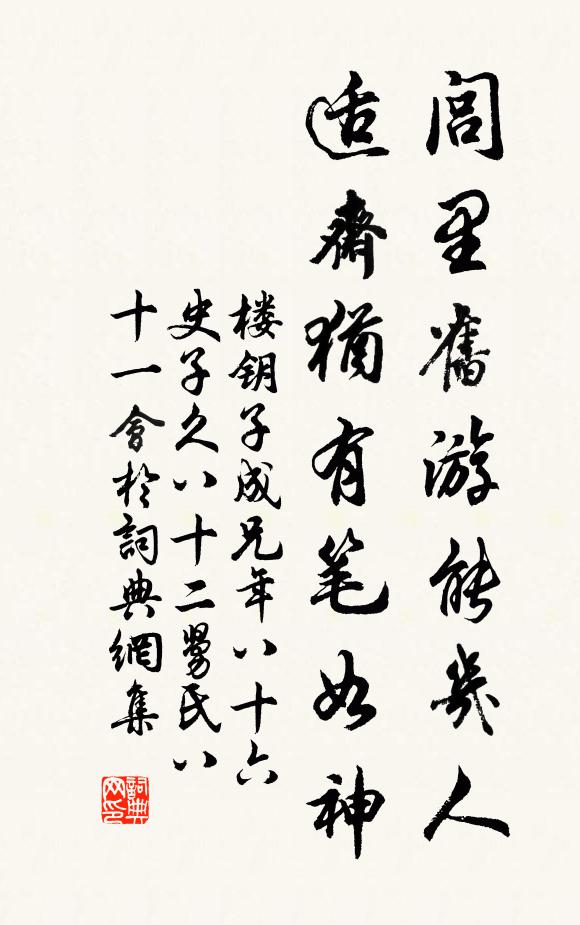 闾里舊游能幾人
适齋猶有笔如神
楼钥子成兄年八十六
史子久八十二昜民八
十一會於詞典網集
詞典网印